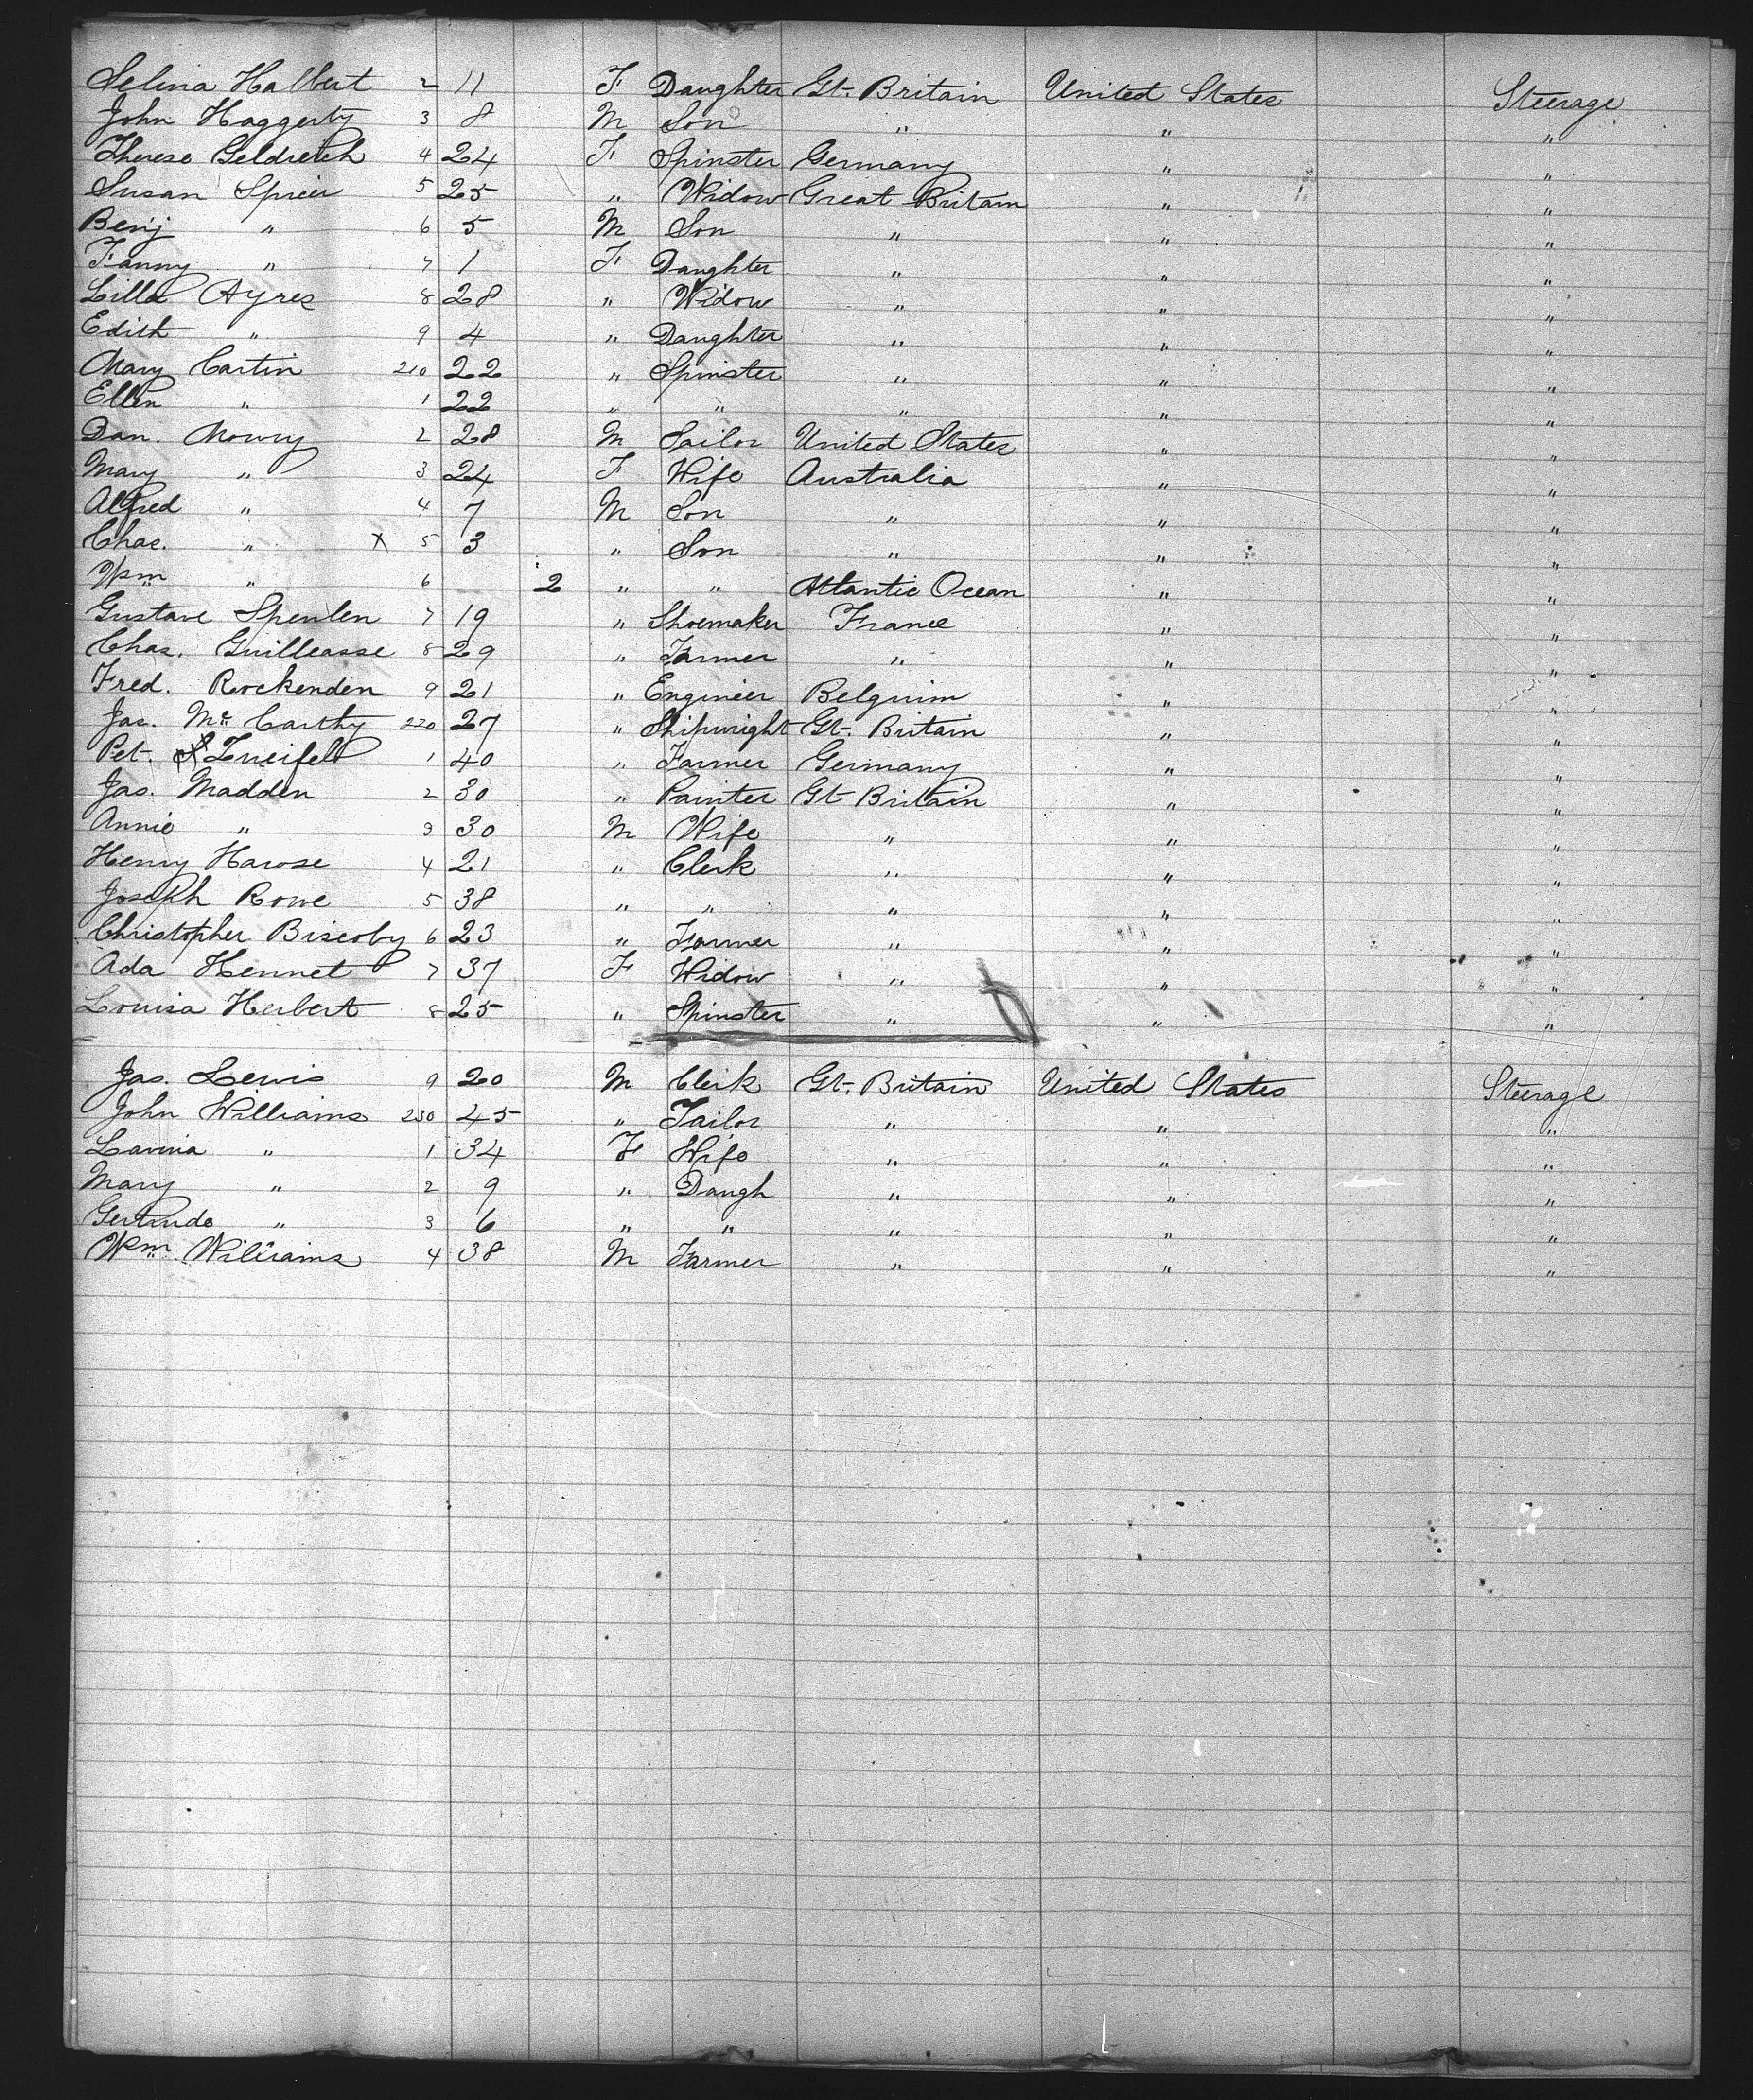 Selina Halbert 2 11 F Daughter Gt. Britain United States Steerage
John Haggerty 3 8 M Son " " "
Therese Geldreich 4 24 F Spinster Germany " "
Susan Sprier 5 25 " Widow Great Britain " "
Benj " 6 5 M Son " " "
Fanny " 7 1 F Daughter " " "
Lilla Ayres 8 28 " Widow " " "
Edith " 9 4 " Daughter " " "
Mary Cartin 210 22 " Spinster " " "
Ellen " 1 22 " " " " "
Dan. Mowry 2 28 M Sailor United States " "
Mary " 3 24 F Wife Australia " "
Alfred " 4 7 M Son " " "
Chas. " X 5 3 " Son " " "
Wm " 6 2 " " Atlantic Ocean " "
Gustave Spenlen 7 19 " Shoemaker France " "
Chas. Guilleasse 8 29 " Farmer " " "
Fred. Rockenden 9 21 " Engineer Belguim " "
Jas. Mc Carthy 220 27 " Shipwright Gt. Britain " "
Pet. Zweifel 1 40 " Farmer Germany " "
Jas. Madden 2 30 " Painter Gt Britain " "
Annie " 3 30 M Wife " " "
Henry Harose 4 21 " Clerk " " "
Joseph Rowe 5 38 " " " " "
Christopher Biscoby 6 23 " Farmer " " "
Ada Hennet 7 37 F Widow " " "
Louisa Herbert 8 25 " Spinster " " "
Jas. Lewis 9 20 M Clerk Gt. Britain United States Steerage
John Williams 230 45 " Tailor " " "
Lavinia " 1 34 F Wife " " "
Mary " 2 9 " Daugh " " "
Gertrude " 3 6 " " " " "
Wm. Williams 4 38 M Farmer " " "